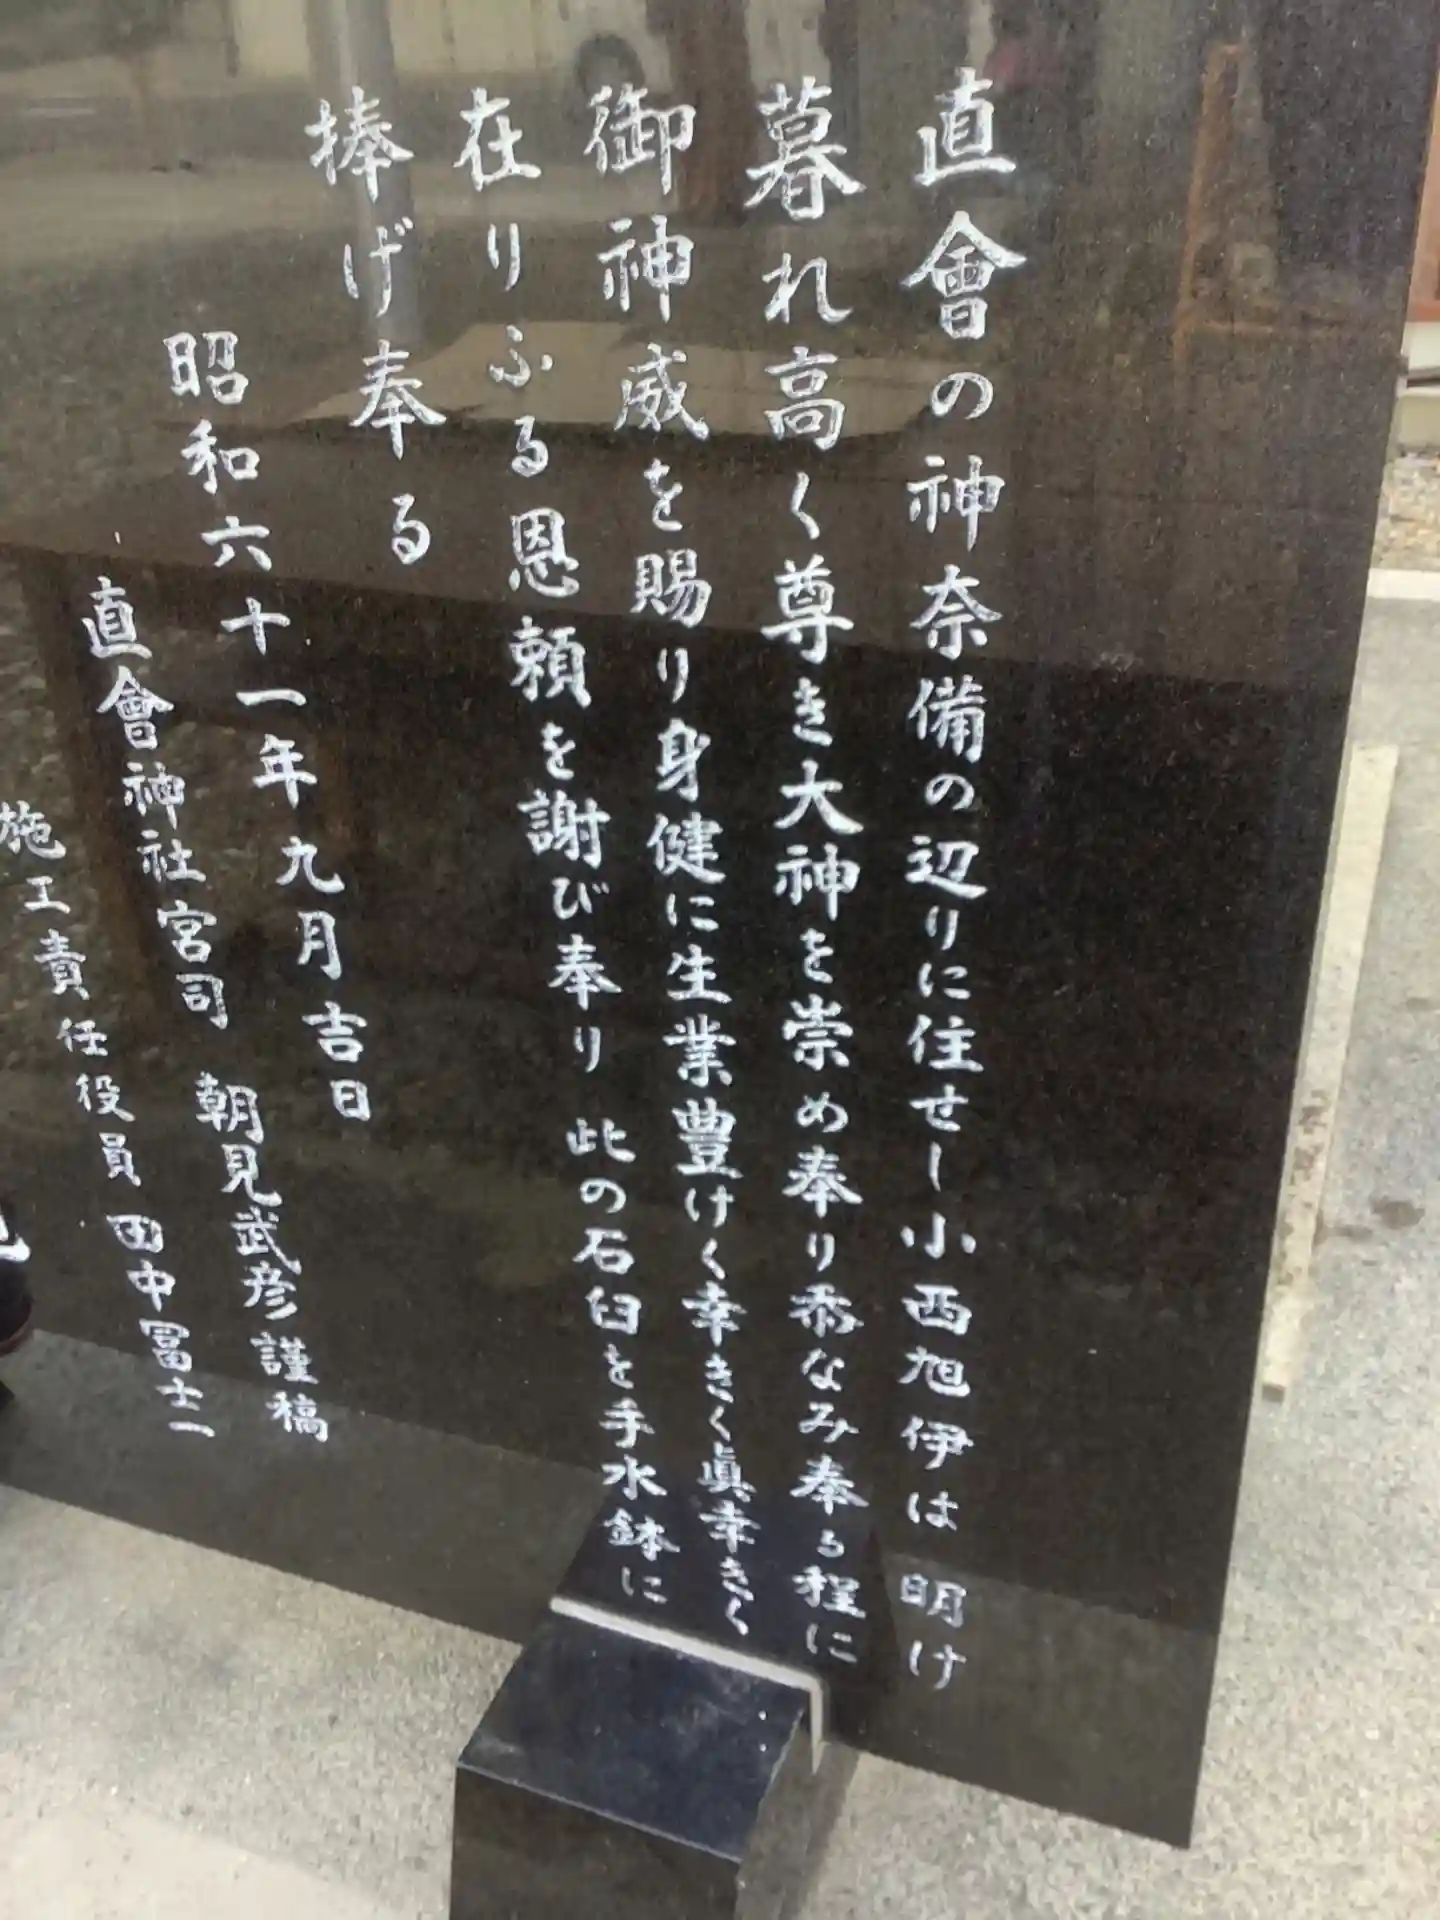 直會の神奈備の辺りに住せし小西旭伊は 明け
暮れ高く尊き大神を崇め奉り忝なみ奉る程に
御神威を賜り身健に生業豊けく幸きく眞幸きく
在りふる恩頼を謝び奉り 此の石臼を手水鉢に
捧げ奉る
昭和六十一年九月吉日
直會神社宮司 朝見武彦謹稿
施工責任役員 田中冨士一